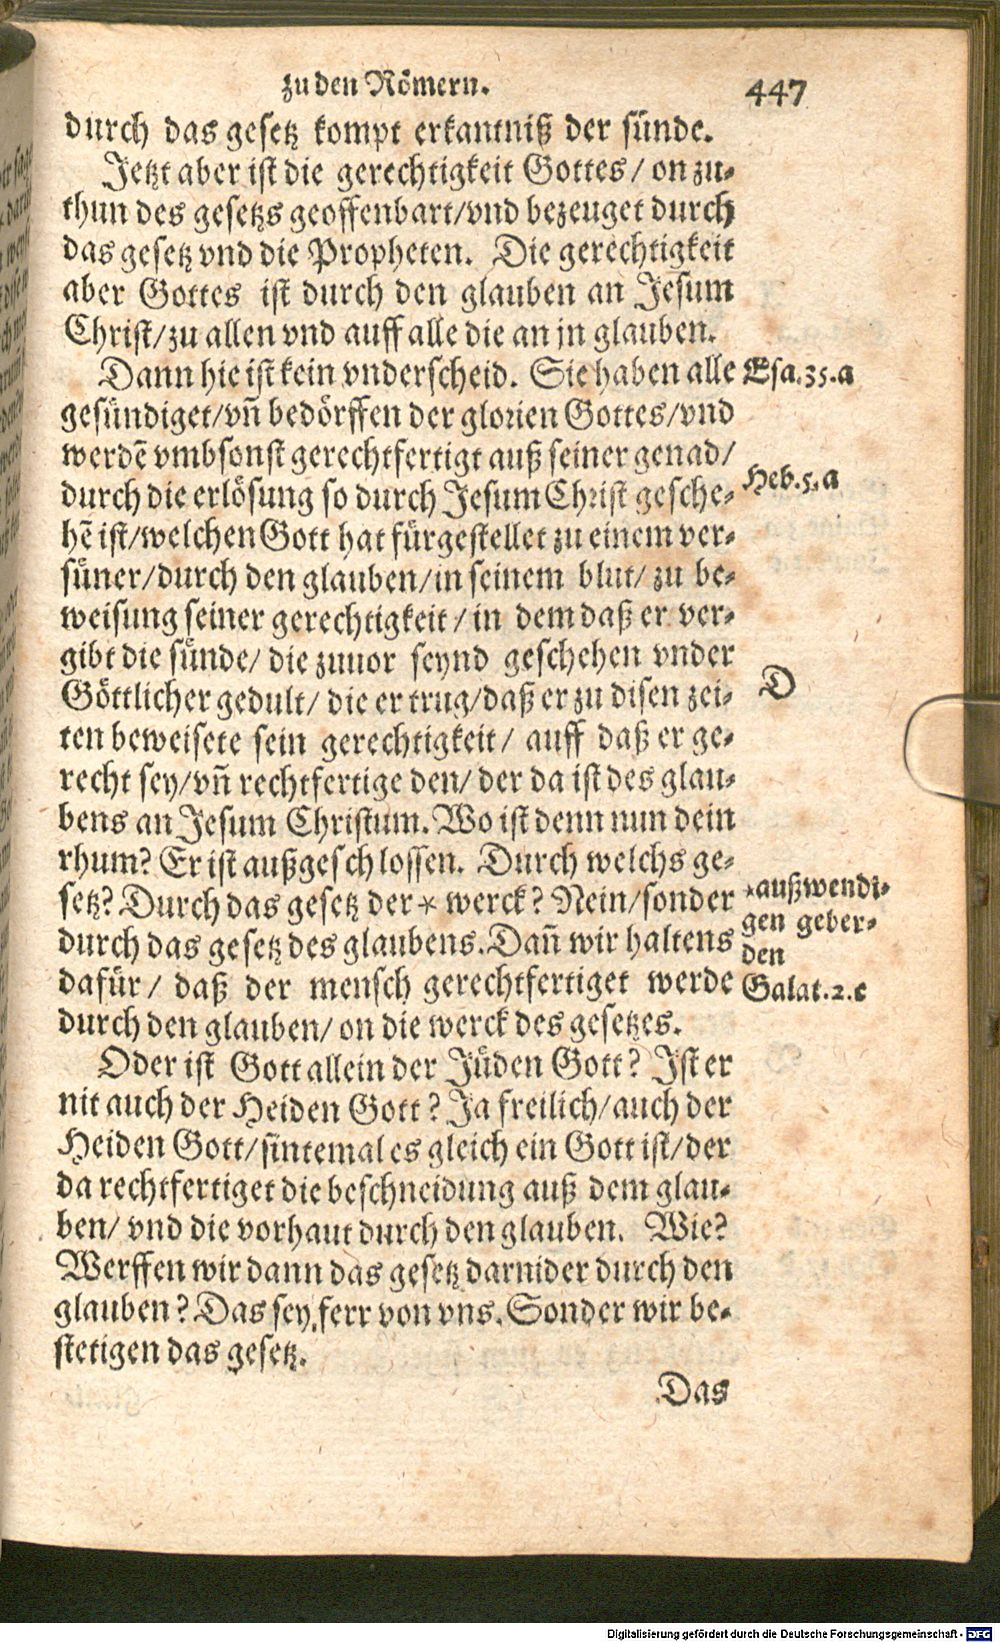 zu den Römern. 447
durch das gesetz kompt erkantniß der sünde.
Jetzt aber ist die gerechtigkeit Gottes / on zu-
thun des gesetzs geoffenbart/vnd bezeuget durch
das gesetz vnd die Propheten. Die gerechtigkeit
aber Gottes ist durch den glauben an Jesum
Christ/zu allen vnd auff alle die an jn glauben.
Dann hie ist kein vnderscheid. Sie haben alle
Esa.35.a
gesündiget/vñ bedörffen der glorien Gottes/vnd
werdẽ vmbsonst gerechtfertigt auß seiner genad/
Heb.5.a
durch die erlösung so durch Jesum Christ gesche-
hẽ ist/welchen Gott hat fürgestellet zu einem ver-
süner/durch den glauben/in seinem blut/ zu be-
weisung seiner gerechtigkeit / in dem daß er ver-
gibt die sünde/ die zuuor seynd geschehen vnder
D
Göttlicher gedult/ die er trug/daß er zu disen zei-
ten beweisete sein gerechtigkeit/ auff daß er ge-
recht sey/vñ rechtfertige den/ der da ist des glau-
bens an Jesum Christum. Wo ist denn nun dein
rhum? Er ist außgeschlossen. Durch welchs ge-
setz? Durch das gesetz der * werck? Nein/sonder
*außwendi-
gen geber-
den
durch das gesetz des glaubens. Dañ wir haltens
dafür/ daß der mensch gerechtfertiget werde
Galat.2.c
durch den glauben/ on die werck des gesetzes.
Oder ist Gott allein der Jüden Gott? Ist er
nit auch der Heiden Gott? Ja freilich/auch der
Heiden Gott/sintemal es gleich ein Gott ist/der
da rechtfertiget die beschneidung auß dem glau-
ben/ vnd die vorhaut durch den glauben. Wie?
Werffen wir dann das gesetz darnider durch den
glauben? Das sey ferr von vns. Sonder wir be-
stetigen das gesetz.
Das
Digitalisierung gefördert durch die Deutsche Forschungsgemeinschaft - DFG